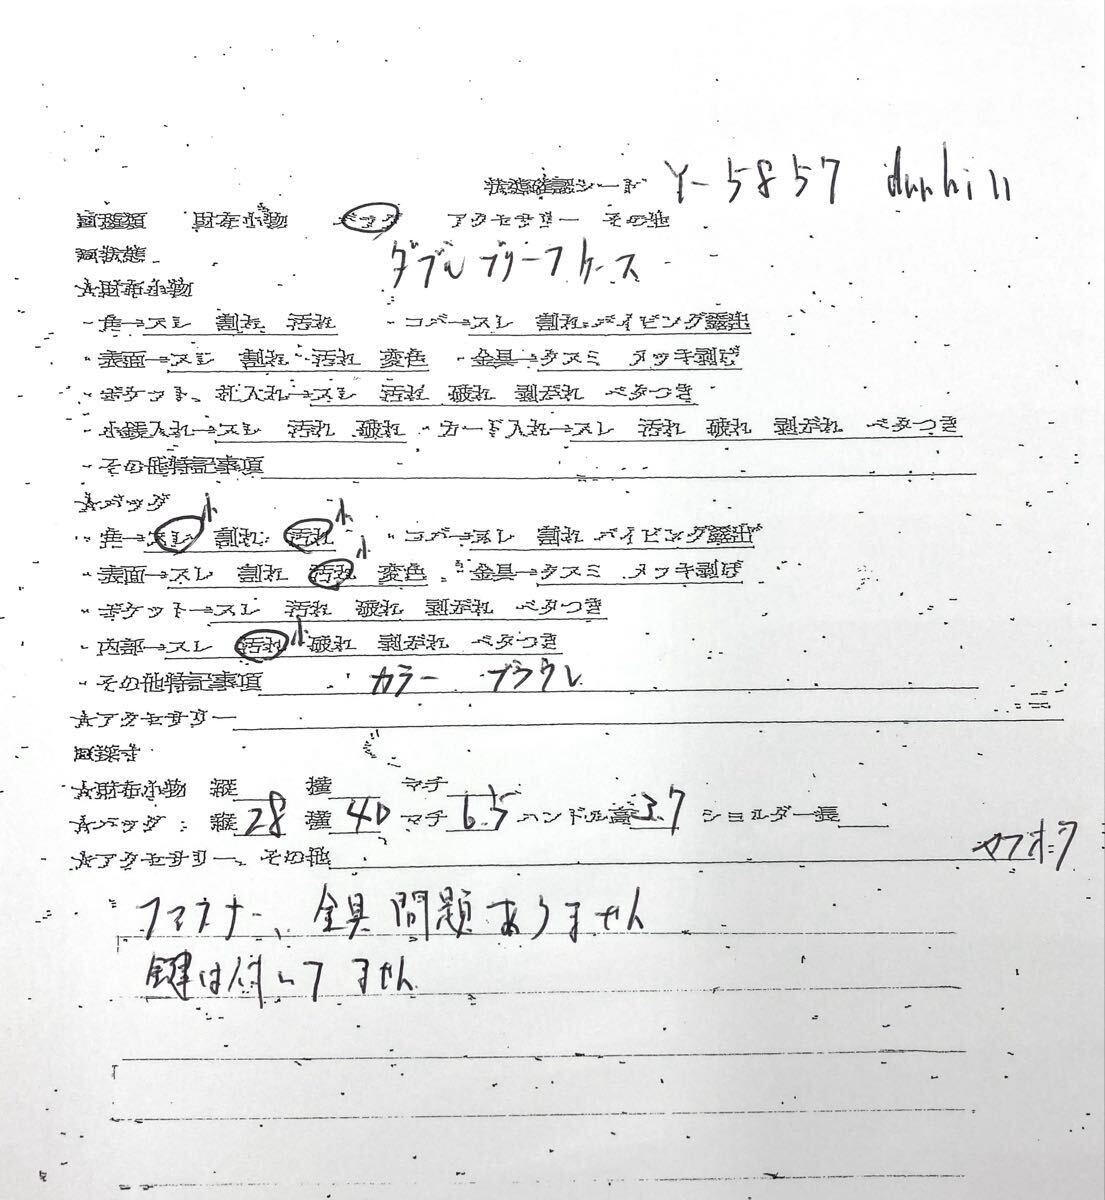 状態確認シート Y-5857 dunhill
□種類 財布小物 バッグ アクセサリー その他
□状態 ダブルブリーフケース
☆財布小物
・角→スレ 割れ 汚れ ・コバ→スレ 割れ パイピング露出
・表面→スレ 割れ 汚れ 変色 ・金具→クスミ メッキ剥げ
・ポケット、札入れ→スレ 汚れ 破れ 剥がれ ベタつき
・小銭入れ→スレ 汚れ 破れ ・カード入れ→スレ 汚れ 破れ 剥がれ ベタつき
・その他特記事項
☆バッグ
・角→スレ小 割れ 汚れ小 ・コバ→スレ 割れ パイピング露出
・表面→スレ 割れ 汚れ小 変色 ・金具→クスミ メッキ剥げ
・ポケット→スレ 汚れ 破れ 剥がれ ベタつき
・内部→スレ 汚れ小 破れ 剥がれ ベタつき
・その他特記事項 カラー ブラウン
☆アクセサリー
□採寸
☆財布小物 縦 横 マチ
☆バッグ:縦28 横40 マチ6.5 ハンドル高37 ショルダー長
☆アクセサリー、その他 ヤフオク
ファスナー、金具問題ありません
鍵は付いてません